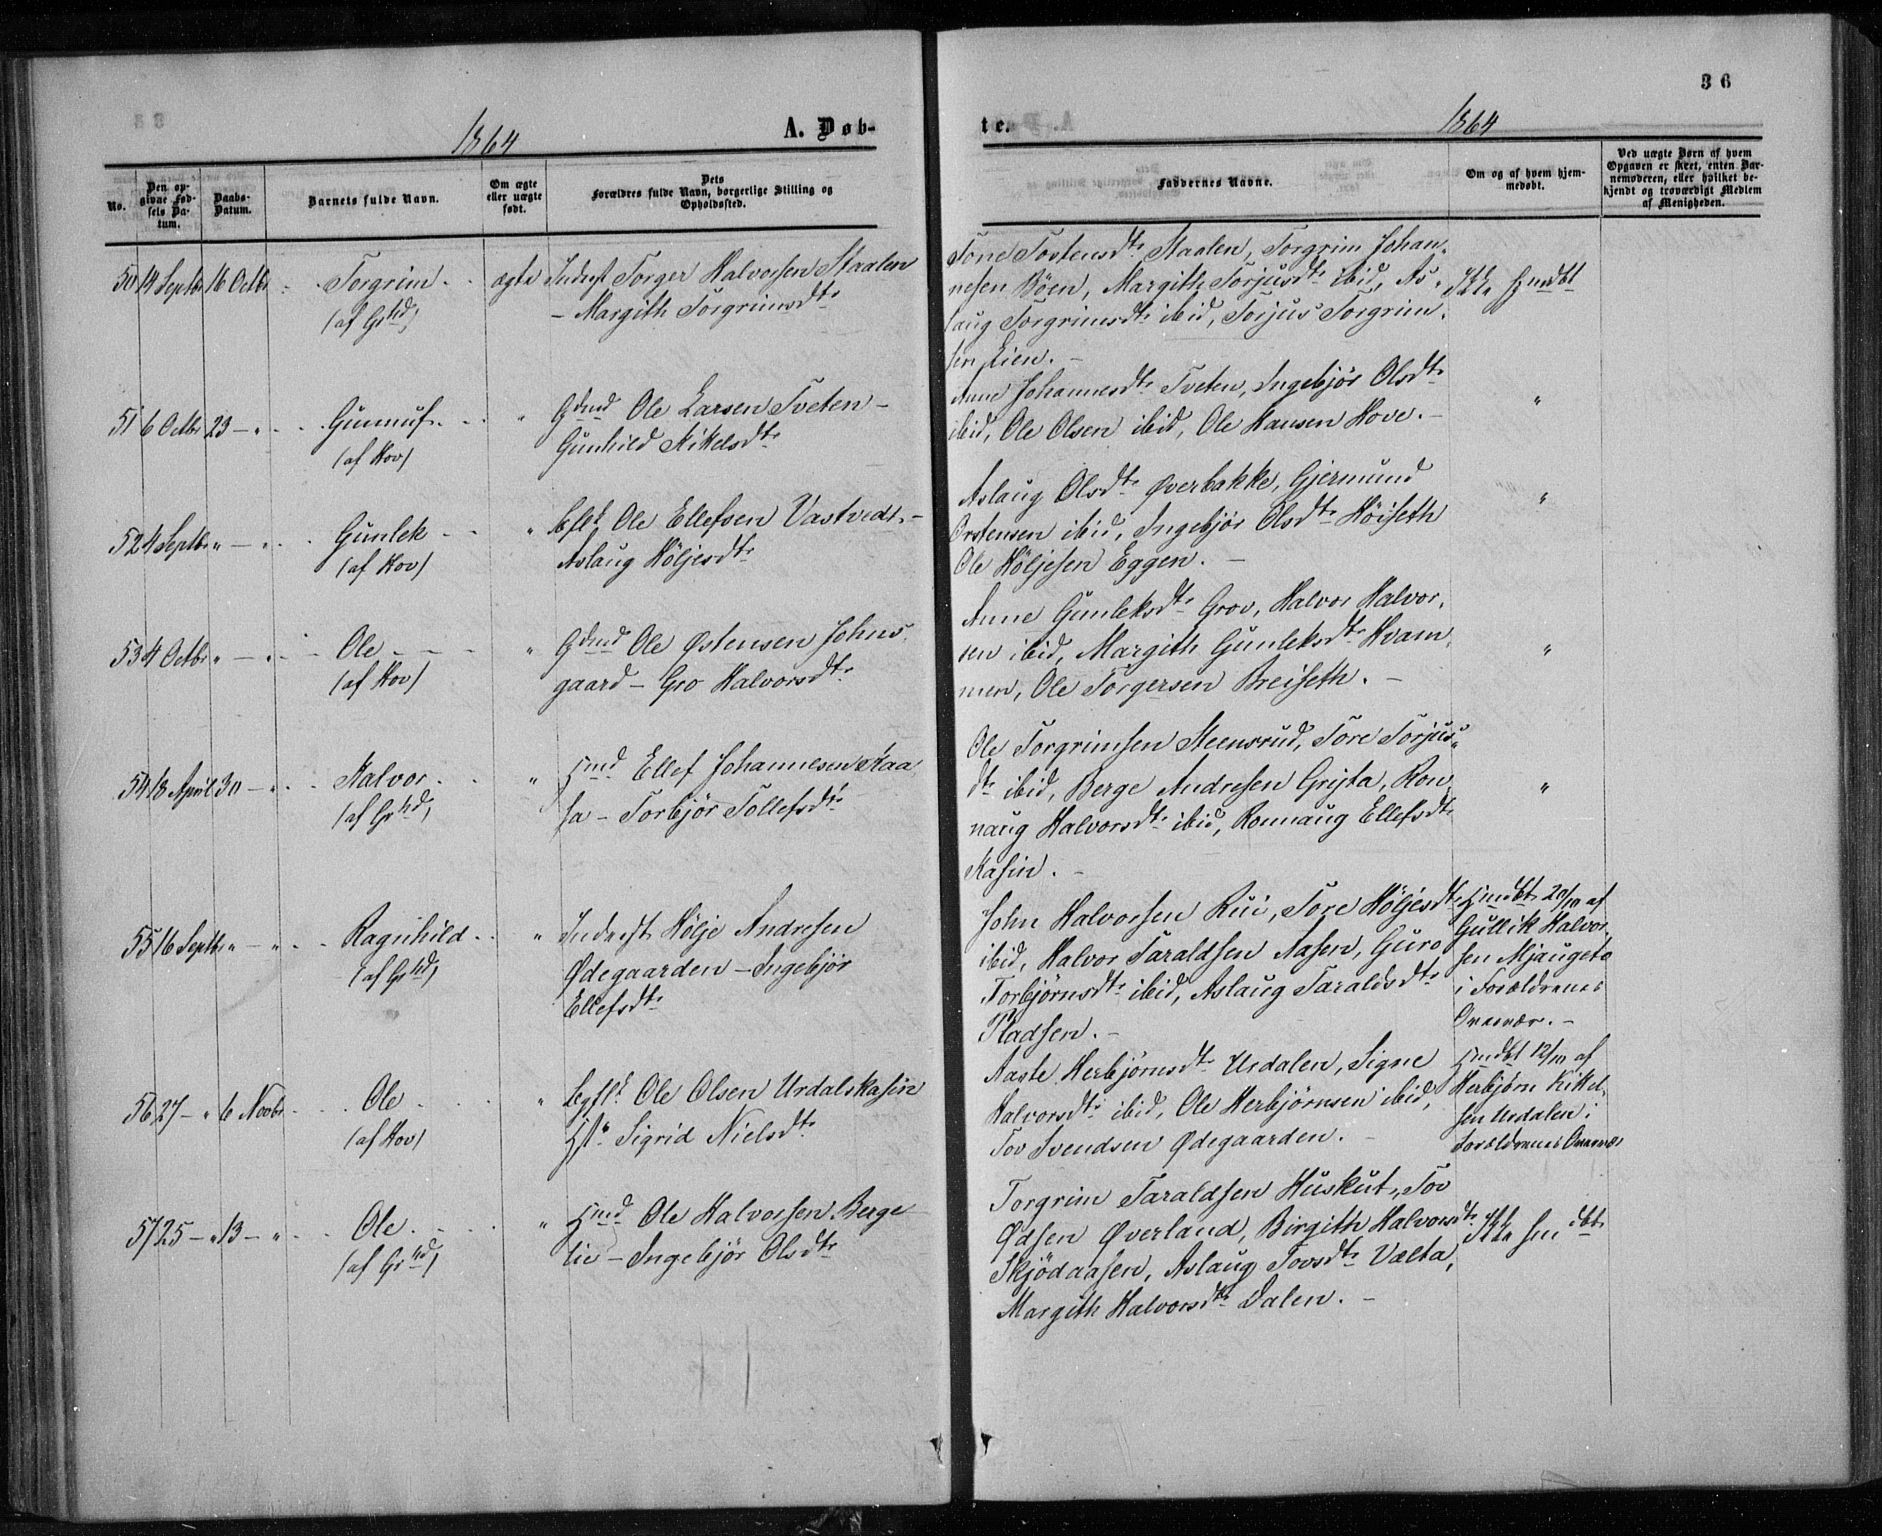 36
1864
A. Døb-
te.
1864
No.
Den op-
givne Fød-
sels Da-
tum.
Daabs-
Datum.
Barnets fulde Navn.
Om ægte
eller uægte
født.
Dets
Forældres fulde Navn, borgerlige Stilling og
Opholdssted.
Faddernes Navne.
Om og af hvem hjem-
medøbt.
Ved uægte Børn af hvem
Opgaven er skeet, enten Bar-
nemoderen, eller hvilket be-
kjendt og troværdigt Medlem
af Menigheden.
50 14 Septbr 16 Octbr Torgrim ægte Inderst Torger Halvorsen Staalen
(af Grhd) - Margith Torgrimsdtr
Tone Tostensdtr Staalen, Torgrim Johan-
nesen Böen, Margith Torjusdtr ibid, As-
laug Torgrimsdtr ibid, Torjus Torgrim-
sen Lien. -
Ikke hjmdbt
51 6 Octbr 23 - " Gunnuf " Gdmd Ole Larsen Tveten -
(af Hov) Gunhild Kikelsdtr
Anne Johannesdtr Tveten, Ingebjör Olsdtr
ibid, Ole Olsen ibid, Ole Hansen Hove. -
"
52 4 Septbr " - " Gunlek " Ole Ellefsen Vastvedt -
(af Hov) Aslaug Höljesdtr
Aslaug Olsdtr Øverbakke, Gjermund
Ostensen ibid, Ingebjör Olsdtr Höiseth
Ole Höljesen Eggen. -
"
53 4 Octbr " - " Ole " Gdmd Ole Østensen Johns-
(af Hov) gaard - Gro Halvorsdtr
Anne Gunleksdtr Grov, Halvor Halvor-
sen ibid, Margith Gunleksdtr Hvam-
men, Ole Torgersen Breiseth. -
"
54 18 April 30 - " Halvor " Hmd Ellef Johannesen Kaa
(af Grhd) sa - Torbjör Tollefsdtr
Ole Torgrimsen Steensrud, Tore Torjus-
dtr ibid, Berge Andresen Grejta, Ron-
naug Halvorsdtr ibid, Ronnaug Ellefsdtr
Kasin. -
"
55 16 Septbr " - " Ragnhild " Inderst Hölje Andresen
(af Grhd) Ødegaarden - Ingebjör
Ellefsdtr
John Halvorsen Rui, Tore Höljesdtr
ibid, Halvor Taraldsen Aasen, Guro
Torbjörnsdtr ibid, Aslaug Taraldsdtr
Pladsen. -
Hjmdbt 20/10 af
Gullik Halvor-
sen Mjaugeto
i Forældrenes
Overvær. -
56 27 - " 6 Novbr Ole " Ole Olsen Urdalskasin
(af Hov) Sigrid Nielsdtr
Aaste Herbjörnsdtr Urdalen, Signe
Halvorsdtr ibid, Ole Herbjörnsen ibid,
Tov Svendsen Ødegaarden. -
Hjmdbt 12/10 af
Herbjörn Kikel-
sen Urdalen i
Forældrenes Overvær
57 25 - " 13 - " Ole " Hmd Ole Halvorsen Berge
(af Grhd) lie - Ingebjör Olsdtr
Torgrim Taraldsen Huskut, Tov
Odsen Øverland, Birgith Halvorsdtr
Skjödaasen, Aslaug Tovsdtr Vælta,
Margith Halvorsdtr Dalen. -
Ikke hjmdbt